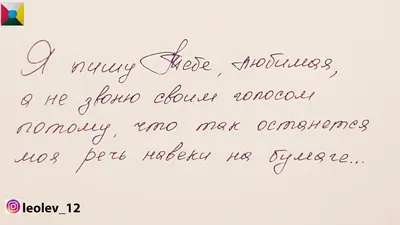 Я пишу Тебе, любимая,
а не звоню своим голосом
потому, что так останется
моя речь навеки на бумаге...
leolev_12